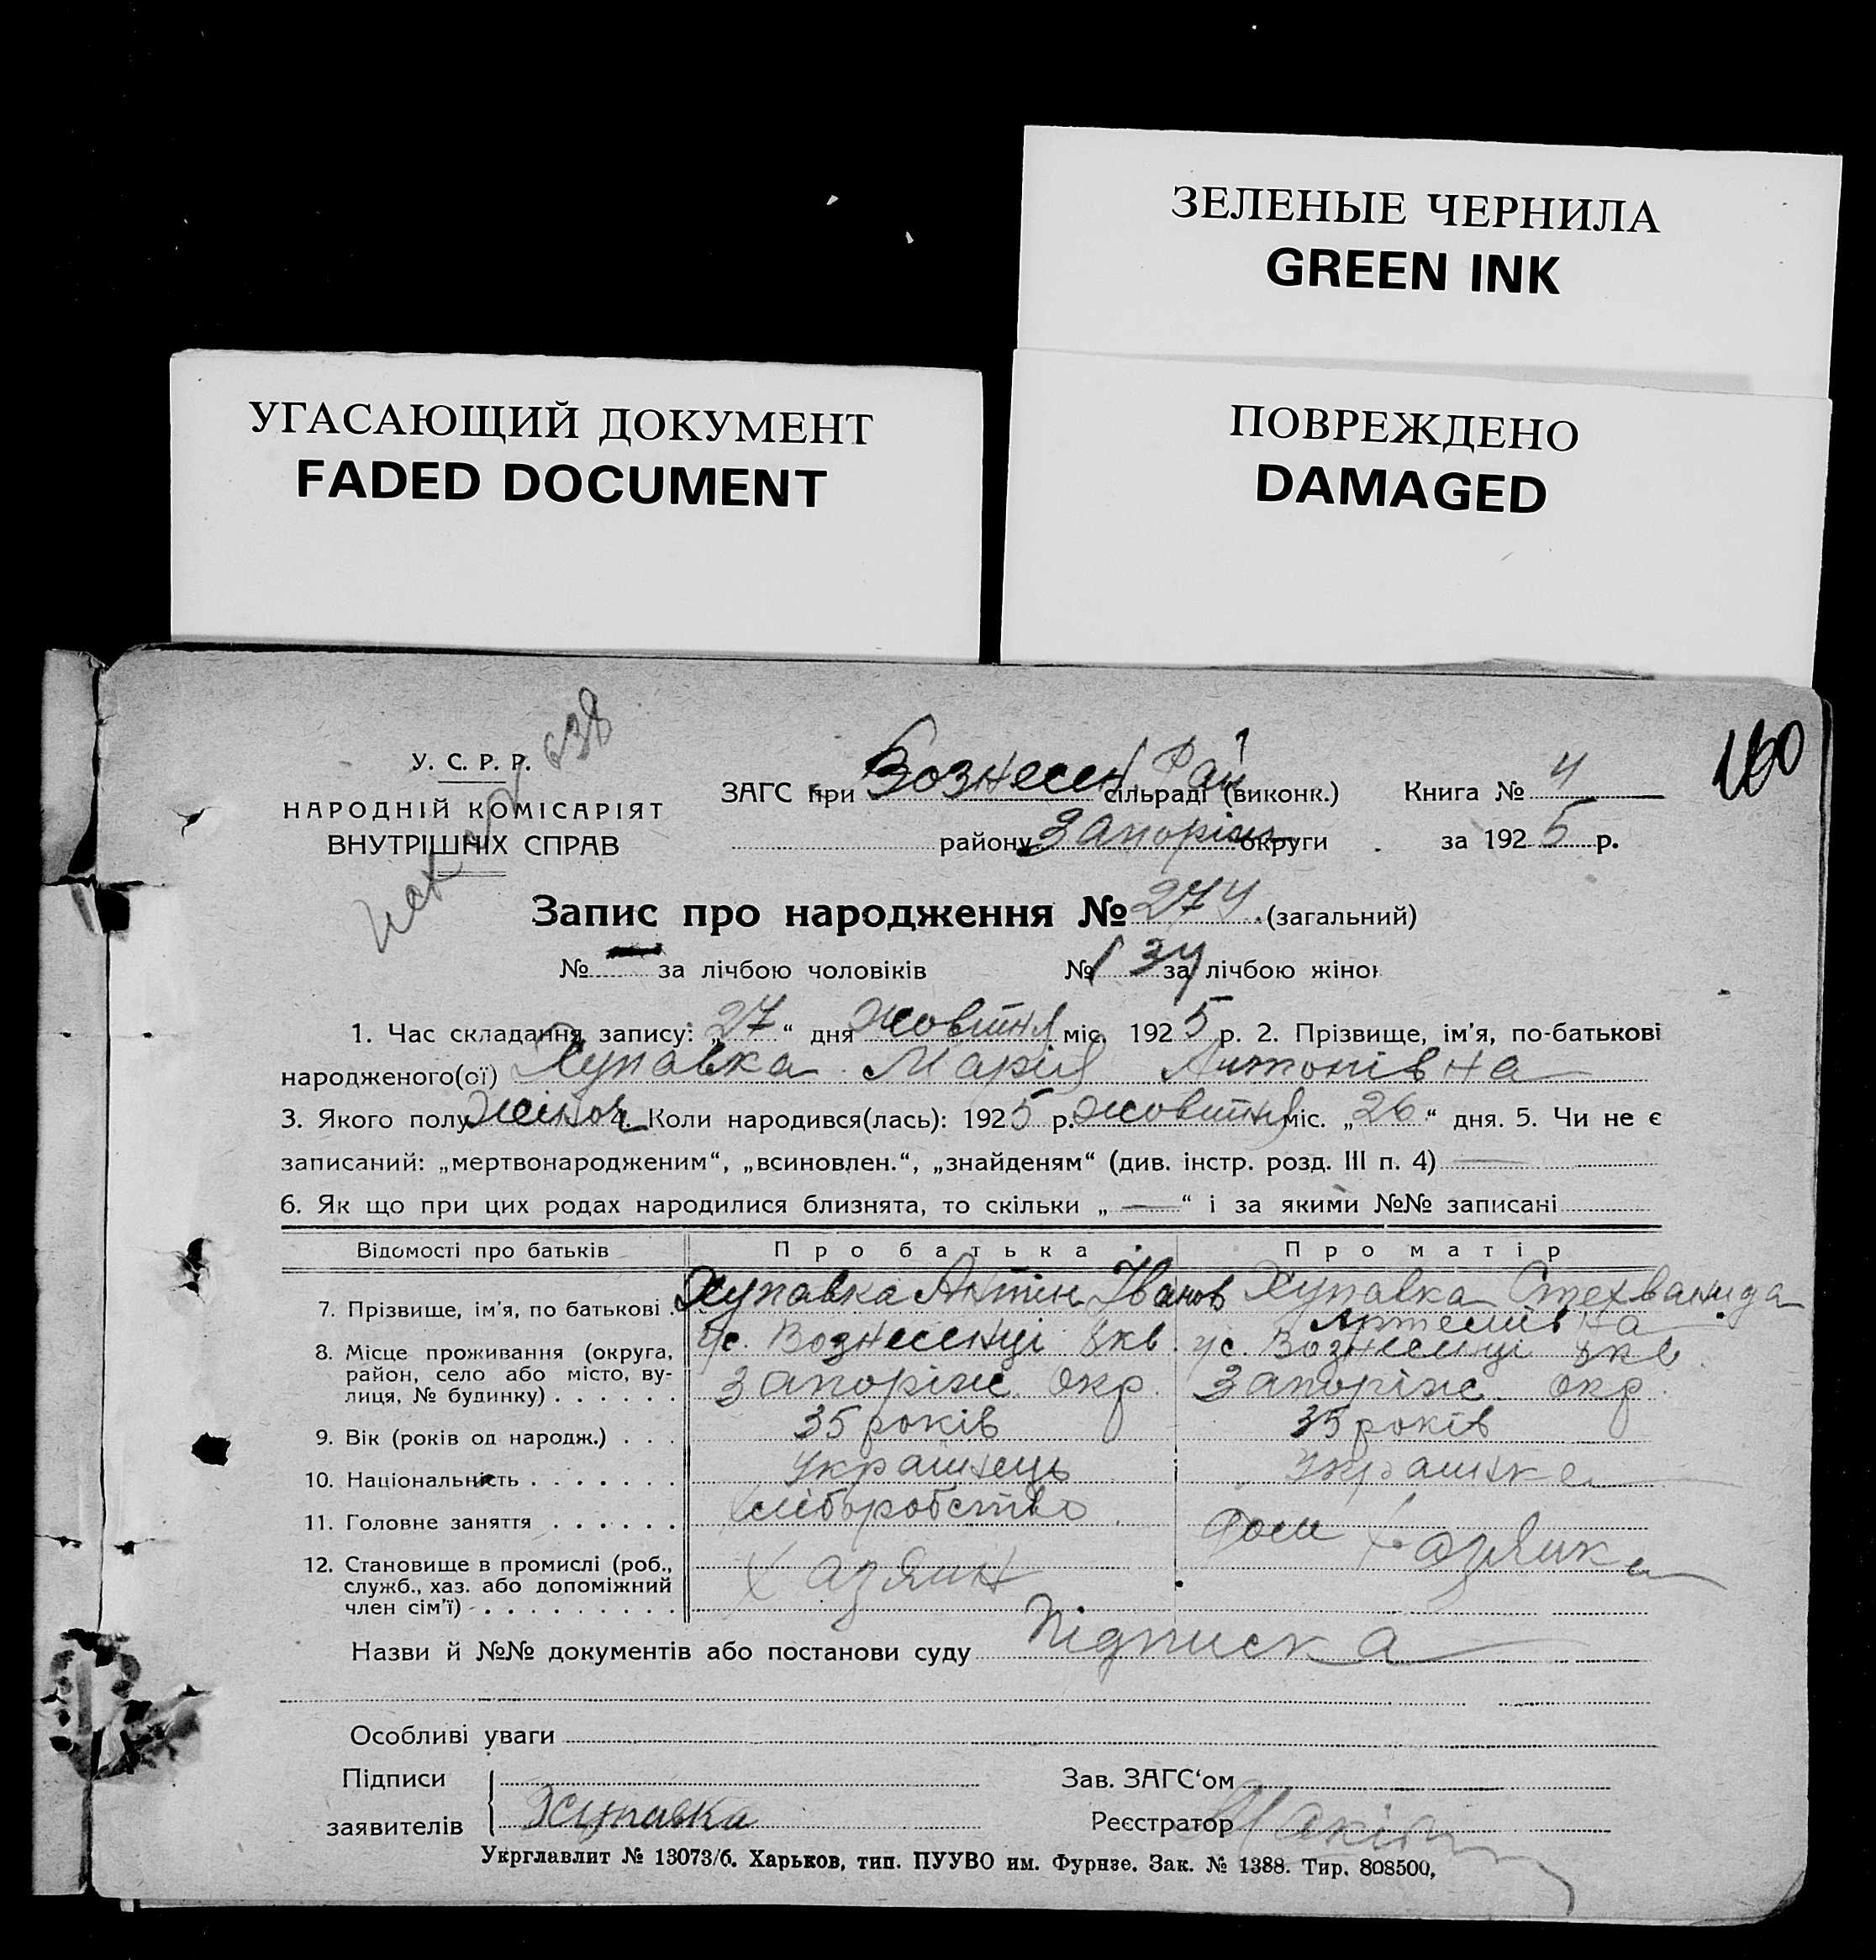 ЗЕЛЕНЫЕ ЧЕРНИЛА
GREEN INK
УГАСАЮЩИЙ ДОКУМЕНТ
FADED DOCUMENT
ПОВРЕЖДЕНО
DAMAGED
638
160
У. С. Р. Р.
НАРОДНІЙ КОМІСАРІЯТ
ВНУТРІШНІХ СПРАВ
ЗАГС при Вознесен. Рай сільраді (виконк.) Книга № 4
району Запоріж округи за 1925 р.
Запис про народження № 274 (загальний)
№ — за лічбою чоловіків № 134 за лічбою жінок
1. Час складання запису: „27“ дня жовтня міс. 1925 р. 2. Прізвище, ім'я, по-батькові
народженого(ої) Хупавка Марія Антонівна
3. Якого полу жіноч 4. Коли народився(лась): 1925 р. жовтня міс. „26“ дня. 5. Чи не є
записаний: „мертвонародженим“, „всиновлен.“, „знайденям“ (див. інстр. розд. III п. 4) —
6. Як що при цих родах народилися близнята, то скільки „—“ і за якими №№ записані
Відомості про батьків Про батька Про матір
7. Прізвище, ім'я, по батькові . Хупавка Антін Іванов Хупавка Стехванида
Артемівна
8. Місце проживання (округа, район, село або місто, вулиця, № будинку) . . . . . .
с. Вознесенці 8кв. с. Вознесенці 8кв.
Запоріж. окр. Запоріж. окр.
9. Вік (років од народж.) . . . 35 років 35 років
10. Національність . . . . . . . Українець Українка
11. Головне заняття . . . . . . хліборобство Дом хазяйка
12. Становище в промислі (роб., служб., хаз. або допоміжний член сім'ї) . . . . . . . . . Хазяин
Назви й №№ документів або постанови суду Підписка
Особливі уваги
Підписи Зав. ЗАГС'ом
заявителів Хупавка Реєстратор
Укрглавлит № 13073/б. Харьков, тип. ПУУВО им. Фрунзе. Зак. № 1388. Тир. 808500,